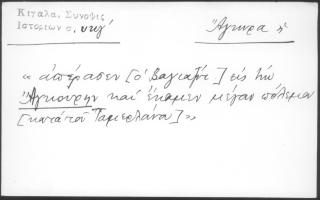 Κιγάλα, Σύνοψις
Ιστοριών σ. υιγ´
Ἄγκυρα ἡ
« ἀπέρασεν [ὁ Βαγιαζὴτ] εἰς τὴν
Ἄγκουρην καὶ ἔκαμεν μέγαν πόλεμον
[κατὰ τοῦ Ταμερλάνου] »